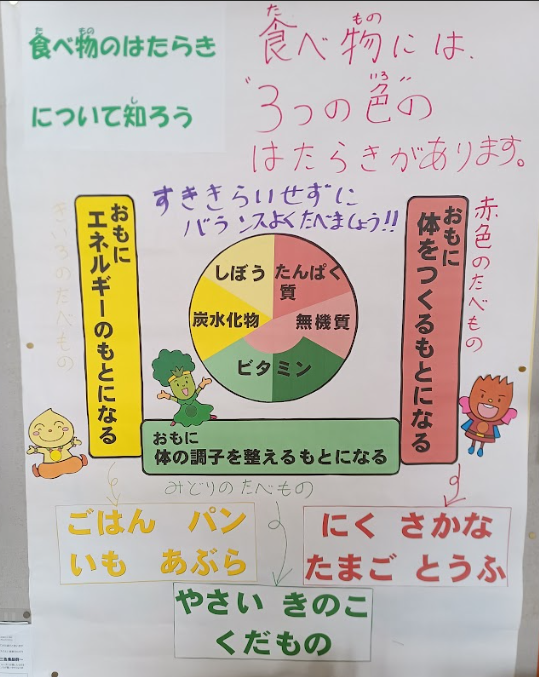 食べ物のはたらき
について知ろう
食べ物には、
"3つの色"の
はたらきがあります。
すききらいせずに
バランスよくたべましょう!!
きいろのたべもの
おもに
エネルギーのもとになる
しぼう
たんぱく
質
炭水化物
無機質
ビタミン
おもに
体をつくるもとになる
赤色のたべもの
おもに
体の調子を整えるもとになる
みどりのたべもの
ごはん パン
いも あぶら
にく さかな
たまご とうふ
やさい きのこ
くだもの